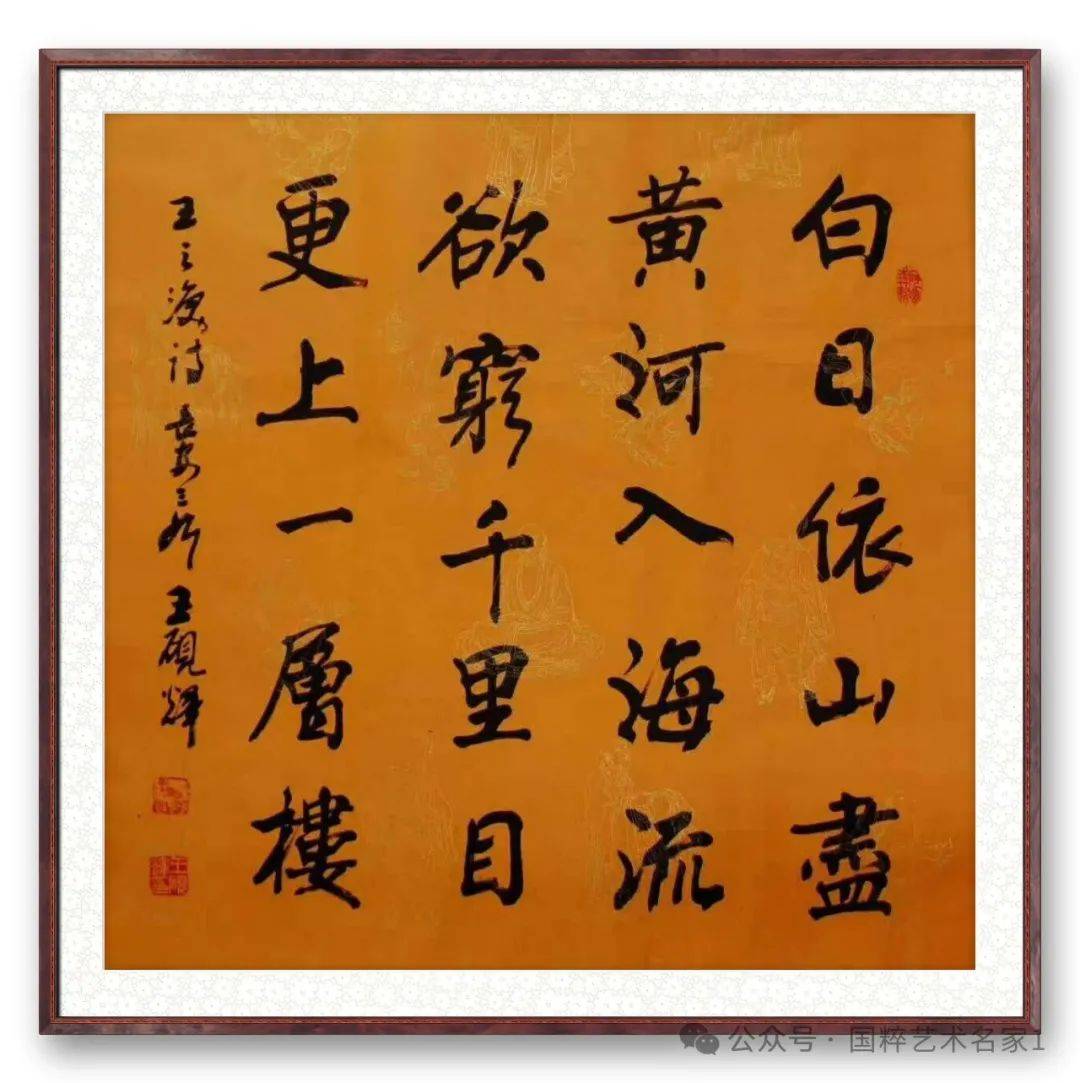 白日依山盡
黄河入海流
欲窮千里目
更上一層樓
王之渙诗 王硯
公众号 · 国粹艺术名家1